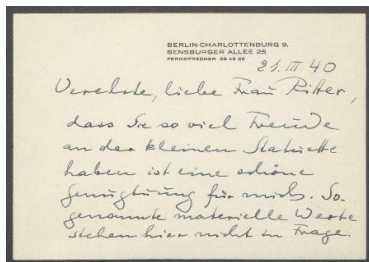 BERLIN-CHARLOTTENBURG 9.
SENSBURGER ALLEE 25
FERNSPRECHER 99 49 25
21. III 40
Verehrte, liebe Frau Ritter,
dass Sie so viel Freude
an der kleinen Statuette
haben ist eine schöne
Genugtuung für mich. So-
genannte materielle Werte
stehen hier nicht in Frage.